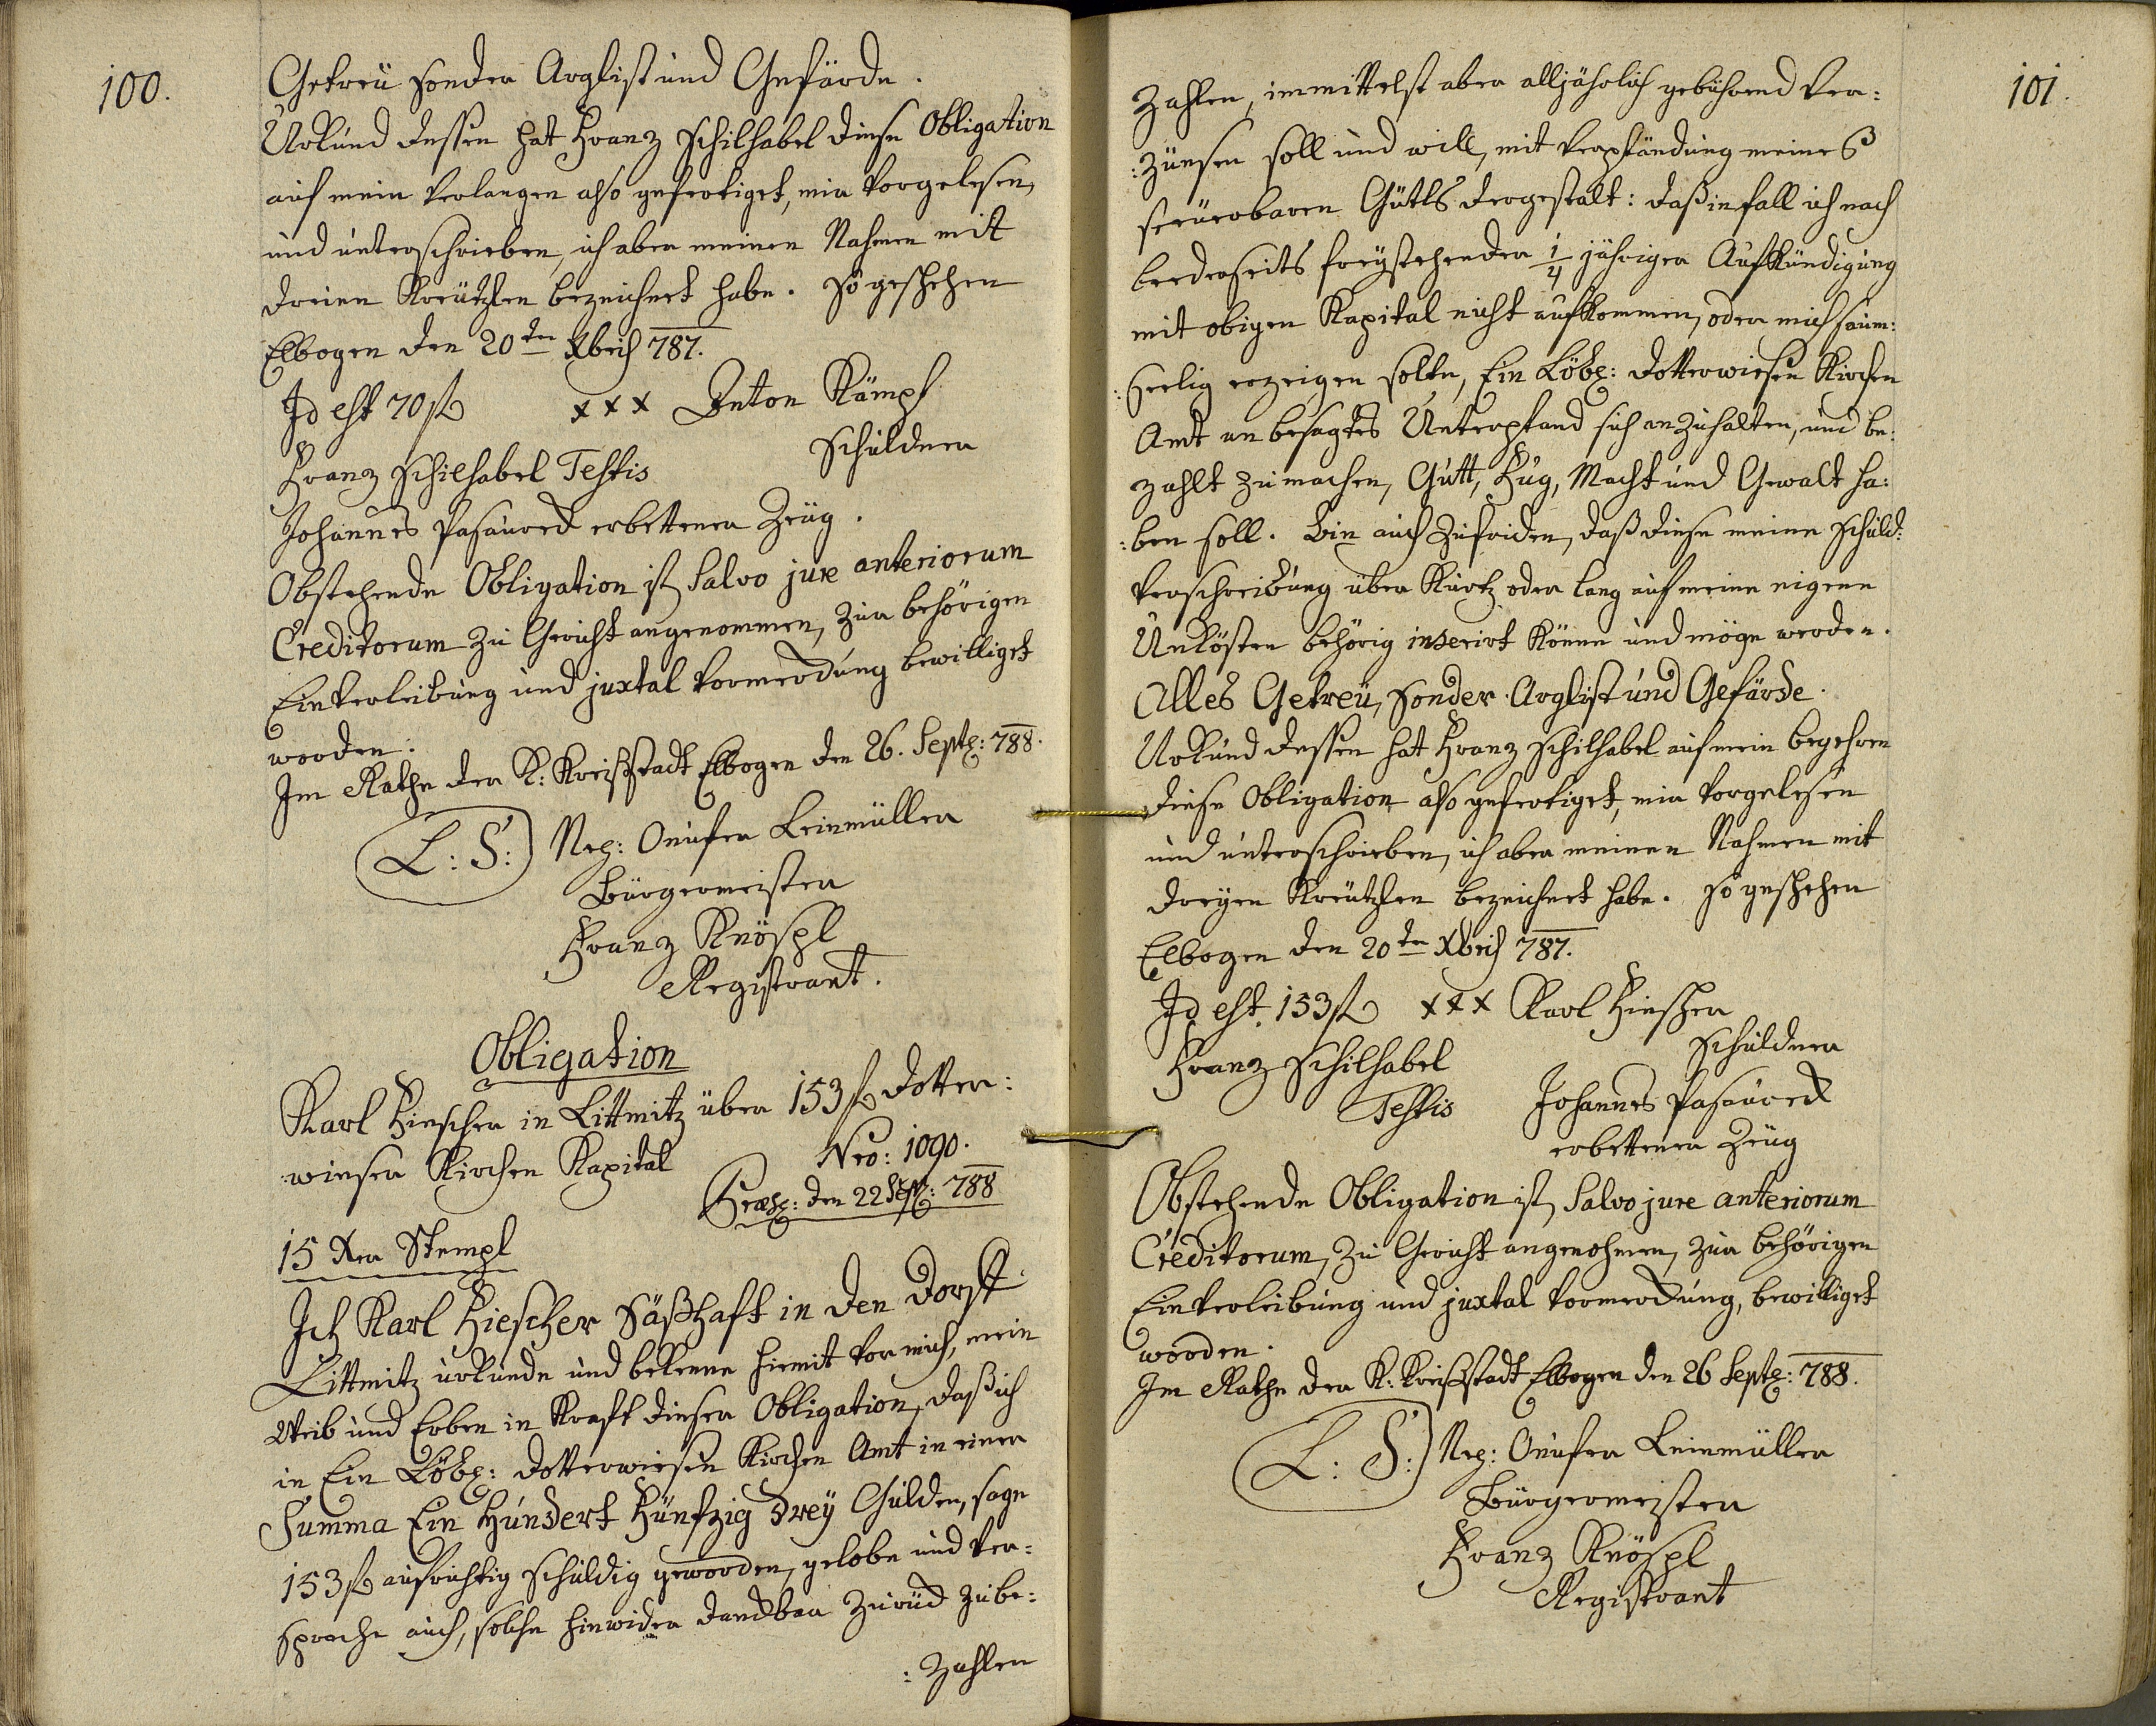 100.
Getreü sonder Arglist und Gefärde.
Urkund dessen hat Franz Schilhabel diese Obligation
auf mein Verlangen also gefertiget, mir vorgelesen,
und unterschrieben, ich aber meinen Nahmen mit
dreien Kreützlen bezeichnet habe. So geschehen
Elbogen den 20ten Xbris 787.
Id est 70 fl xxx Anton Kämpf
Schuldner
Franz Schilhabel Testis
Johannes Pasaureck erbettener Zeüg.
Obstehende Obligation ist Salvo jure anteriorum
Creditorum zu Gericht angenommen, zur behörigen
Einverleibung und juxtal Vormerckung bewilliget
worden.
Im Rathe der K: Kreißstadt Elbogen den 26. Septe: 788.
L: S: Neg: Onufer Leinmüller
Bürgermeister
Franz Knöspl
Registrant.
Obligation
Karl Hiescher in Littmitz über 153 fl Dotter:
:wieser Kirchen Kapital
Nro: 1090.
Præs: den 22 Sept: 788
15 Xer Stempl
Ich Karl Hiescher Säßhaft in den Dorff
Littmitz urkunde und bekenne hiemit vor mich, mein
Weib und Erben in Kraft dieser Obligation, daß ich
in Ein Löbl: Dotterwiesen Kirchen Amt in einer
Summa Ein Hundert Fünfzig drey Gulden, sage
153 fl aufrichtig schuldig geworden, gelobe und ver:
spreche auch, solche hinwider danckbar zurück zu be:
:zahlen
101.
zahlen, immittelst aber alljährlich gebührend ver:
:zünsen soll und will, mit Verpfändung meines
steüerbaren Gütls dergestalt: daß infall ich nach
beederseits freystehender 1/4 jähriger Aufkündigung
mit obigen Kapital nicht aufkommen, oder mich saum:
:seelig erzeigen solte, Ein Löbl: Dotterwiesen Kirchen
Amt an besagtes Unterpfand sich anzuhalten, und be:
zahlt zu machen, Gutt, Fug, Macht und Gewalt ha:
:ben soll. Bin auch zufriden, daß diese meine Schuld:
Verschreibung über Kurtz oder lang auf meine eigene
Unkösten behörig inserirt könne und möge werden.
Alles Getreü, sonder Arglist und Gefärde.
Urkund dessen hat Franz Schilhabel auf mein begehren
diese Obligation also gefertiget, mir vorgelesen
und unterschrieben, ich aber meinen Nahmen mit
dreyen Kreützlen bezeichnet habe. So geschehen
Elbogen den 20ten Xbris 787.
Id est 153 fl xxx Karl Hiescher
Schuldner
Franz Schilhabel
Testis Johannes Pasaureck
erbettener Zeüg
Obstehende Obligation ist Salvo jure anteriorum
Creditorum, zu Gericht angenohmen, zur behörigen
Einverleibung und juxtal Vormerckung, bewilliget
worden.
Im Rathe der K: Kreißstadt Elbogen den 26 Septe: 788.
L: S: Neg: Onufer Leinmüller
Bürgermeister
Franz Knöspl
Registrant